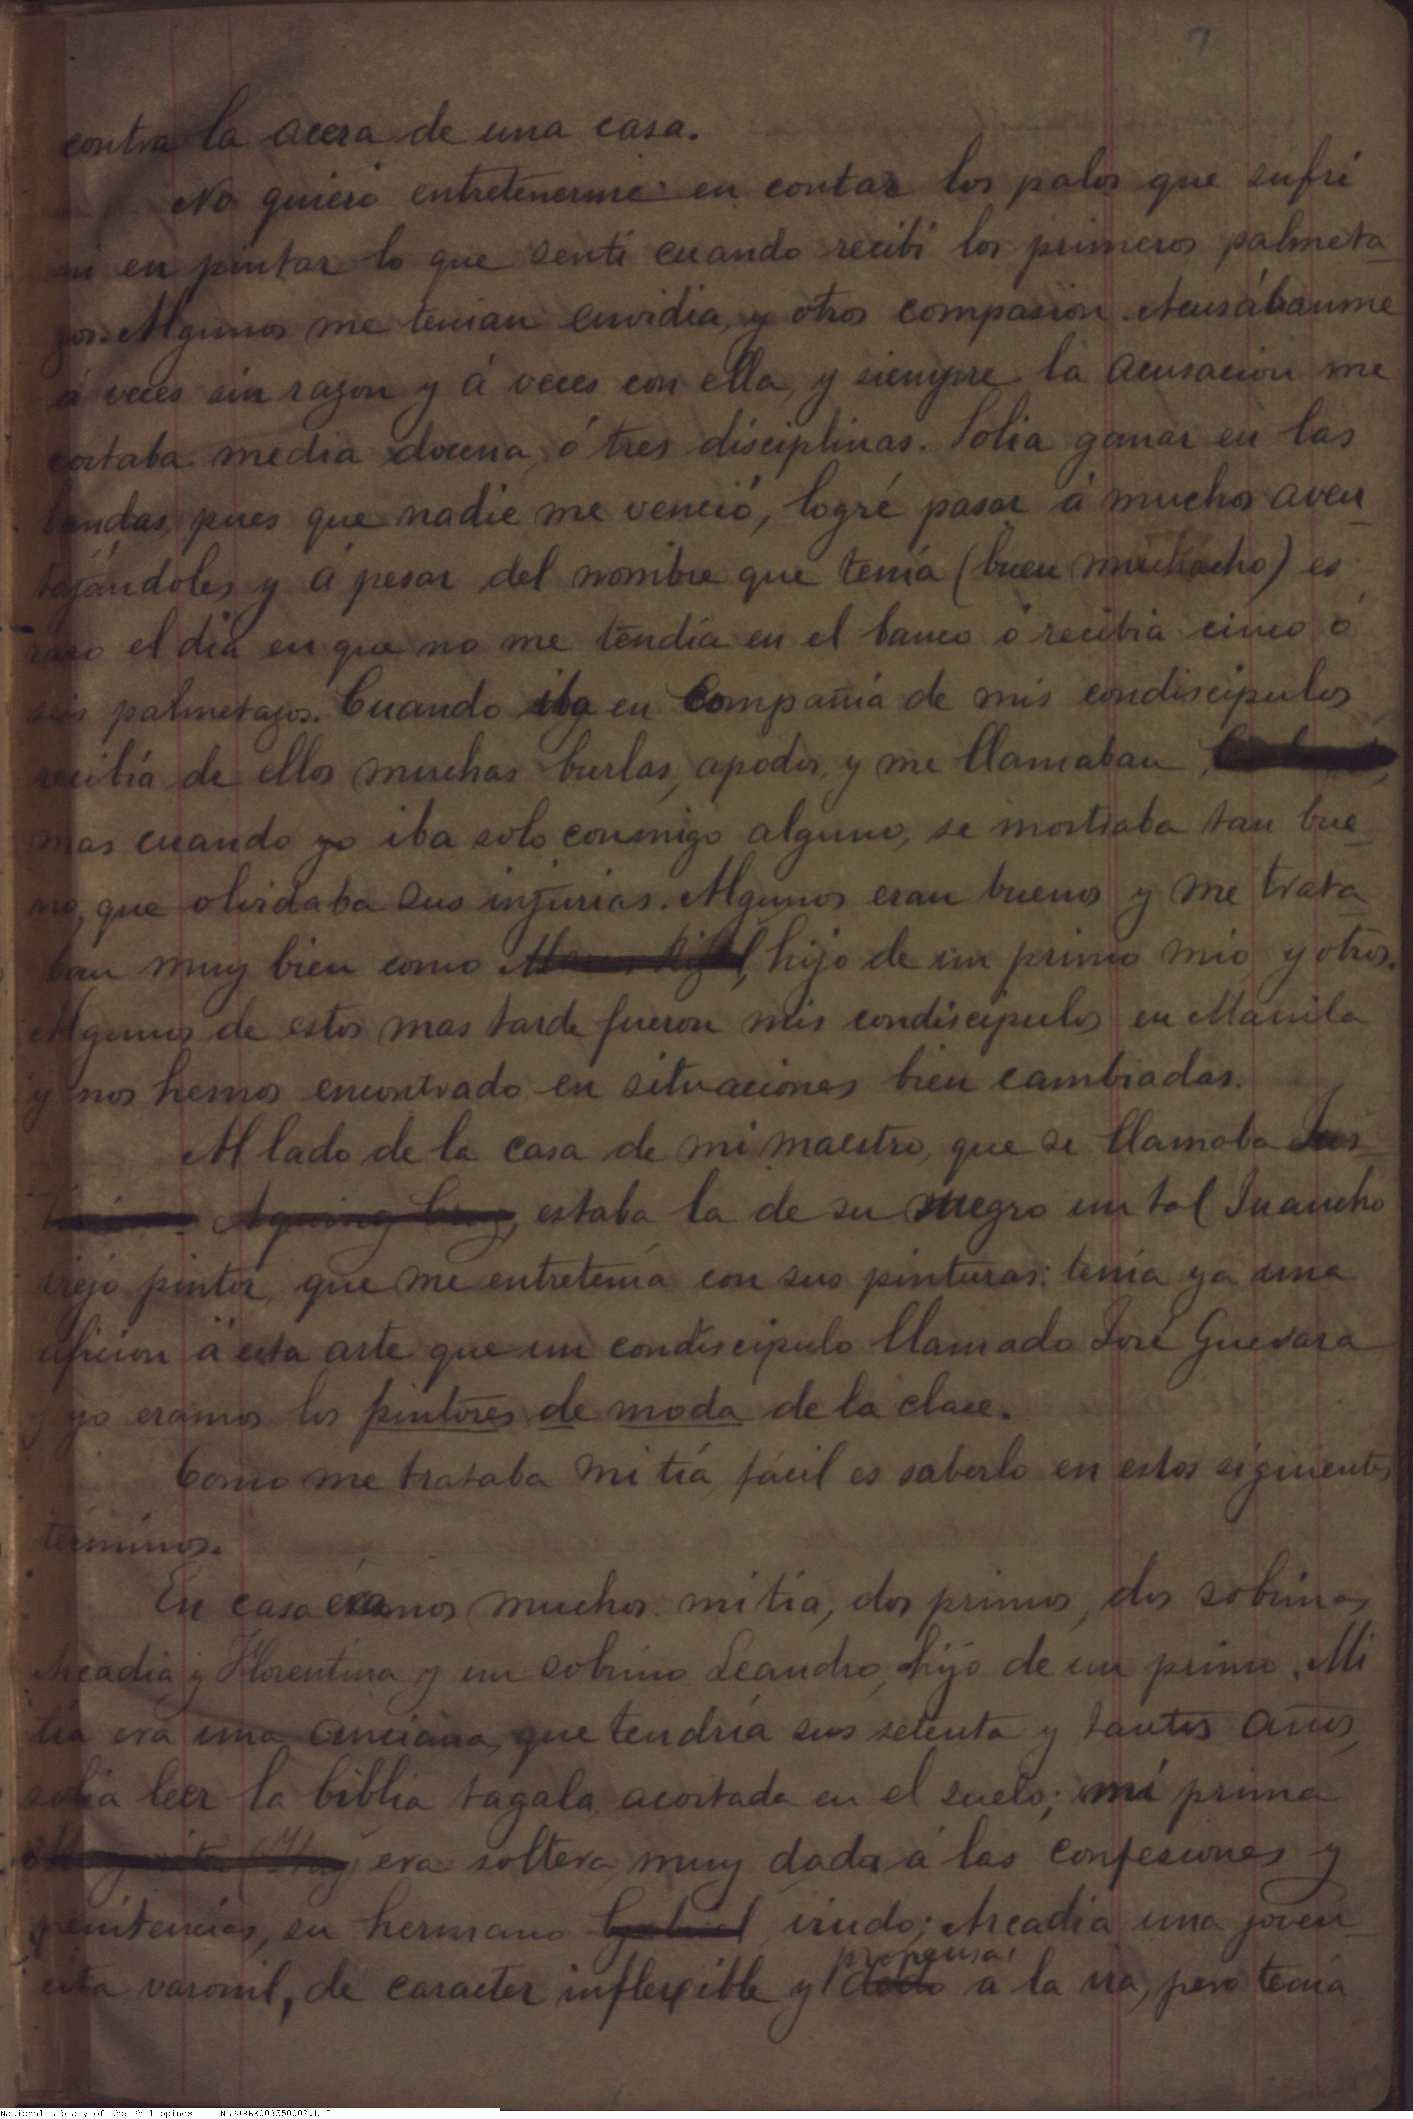 7
contra la acera de una casa.
No quiero entretenerme en contar los palos que sufrí
ni en pintar lo que sentí cuando recibí los primeros palmeta-
zos. Algunos me tenian envidia, y otros compasion. Acusábanme
á veces sin razon y á veces con ella, y siempre la acusacion me
costaba media docena, ó tres disciplinas. Solia ganar en las
bandas, pues que nadie me venció, logré pasar á muchos aven-
tajándoles y á pesar del nombre que tenía (buen muchacho) es
raro el día en que no me tendía en el banco ó recibia cinco ó
seis palmetazos. Cuando iba en compañía de mis condiscipulos
recibía de ellos muchas burlas, apodos, y me llamaban
mas cuando yo iba solo conmigo alguno, se mostraba tan bue-
no, que olvidaba sus injurias. Algunos eran buenos y me trata-
ban muy bien como hijo de un primo mio y otros.
Algunos de estos mas tarde fueron mis condiscipulos en Manila
y nos hemos encontrado en situaciones bien cambiadas.
Al lado de la casa de mi maestro, que se llamaba Jus-
Aquino Cruz, estaba la de su suegro un tal Juancho
viejo pintor, que me entretenía con sus pinturas: tenía ya una
aficion á esta arte que un condiscipulo llamado José Guevara
y yo eramos los pintores de moda de la clase.
Como me trataba mi tía fácil es saberlo en estos siguientes
términos.
En casa éramos muchos: mi tia, dos primos, dos sobrinas
Arcadia y Florentina y un sobrino Leandro, hijo de un primo. Mi
tia era una anciana, que tendría sus setenta y tantos años,
solia leer la biblia tagala, acostada en el suelo; mi prima
era soltera, muy dada á las confesiones y
penitencias, su hermano Gabriel viudo; Arcadia una joven-
cita varonil, de caracter inflexible y propensa á la ira, pero tenía